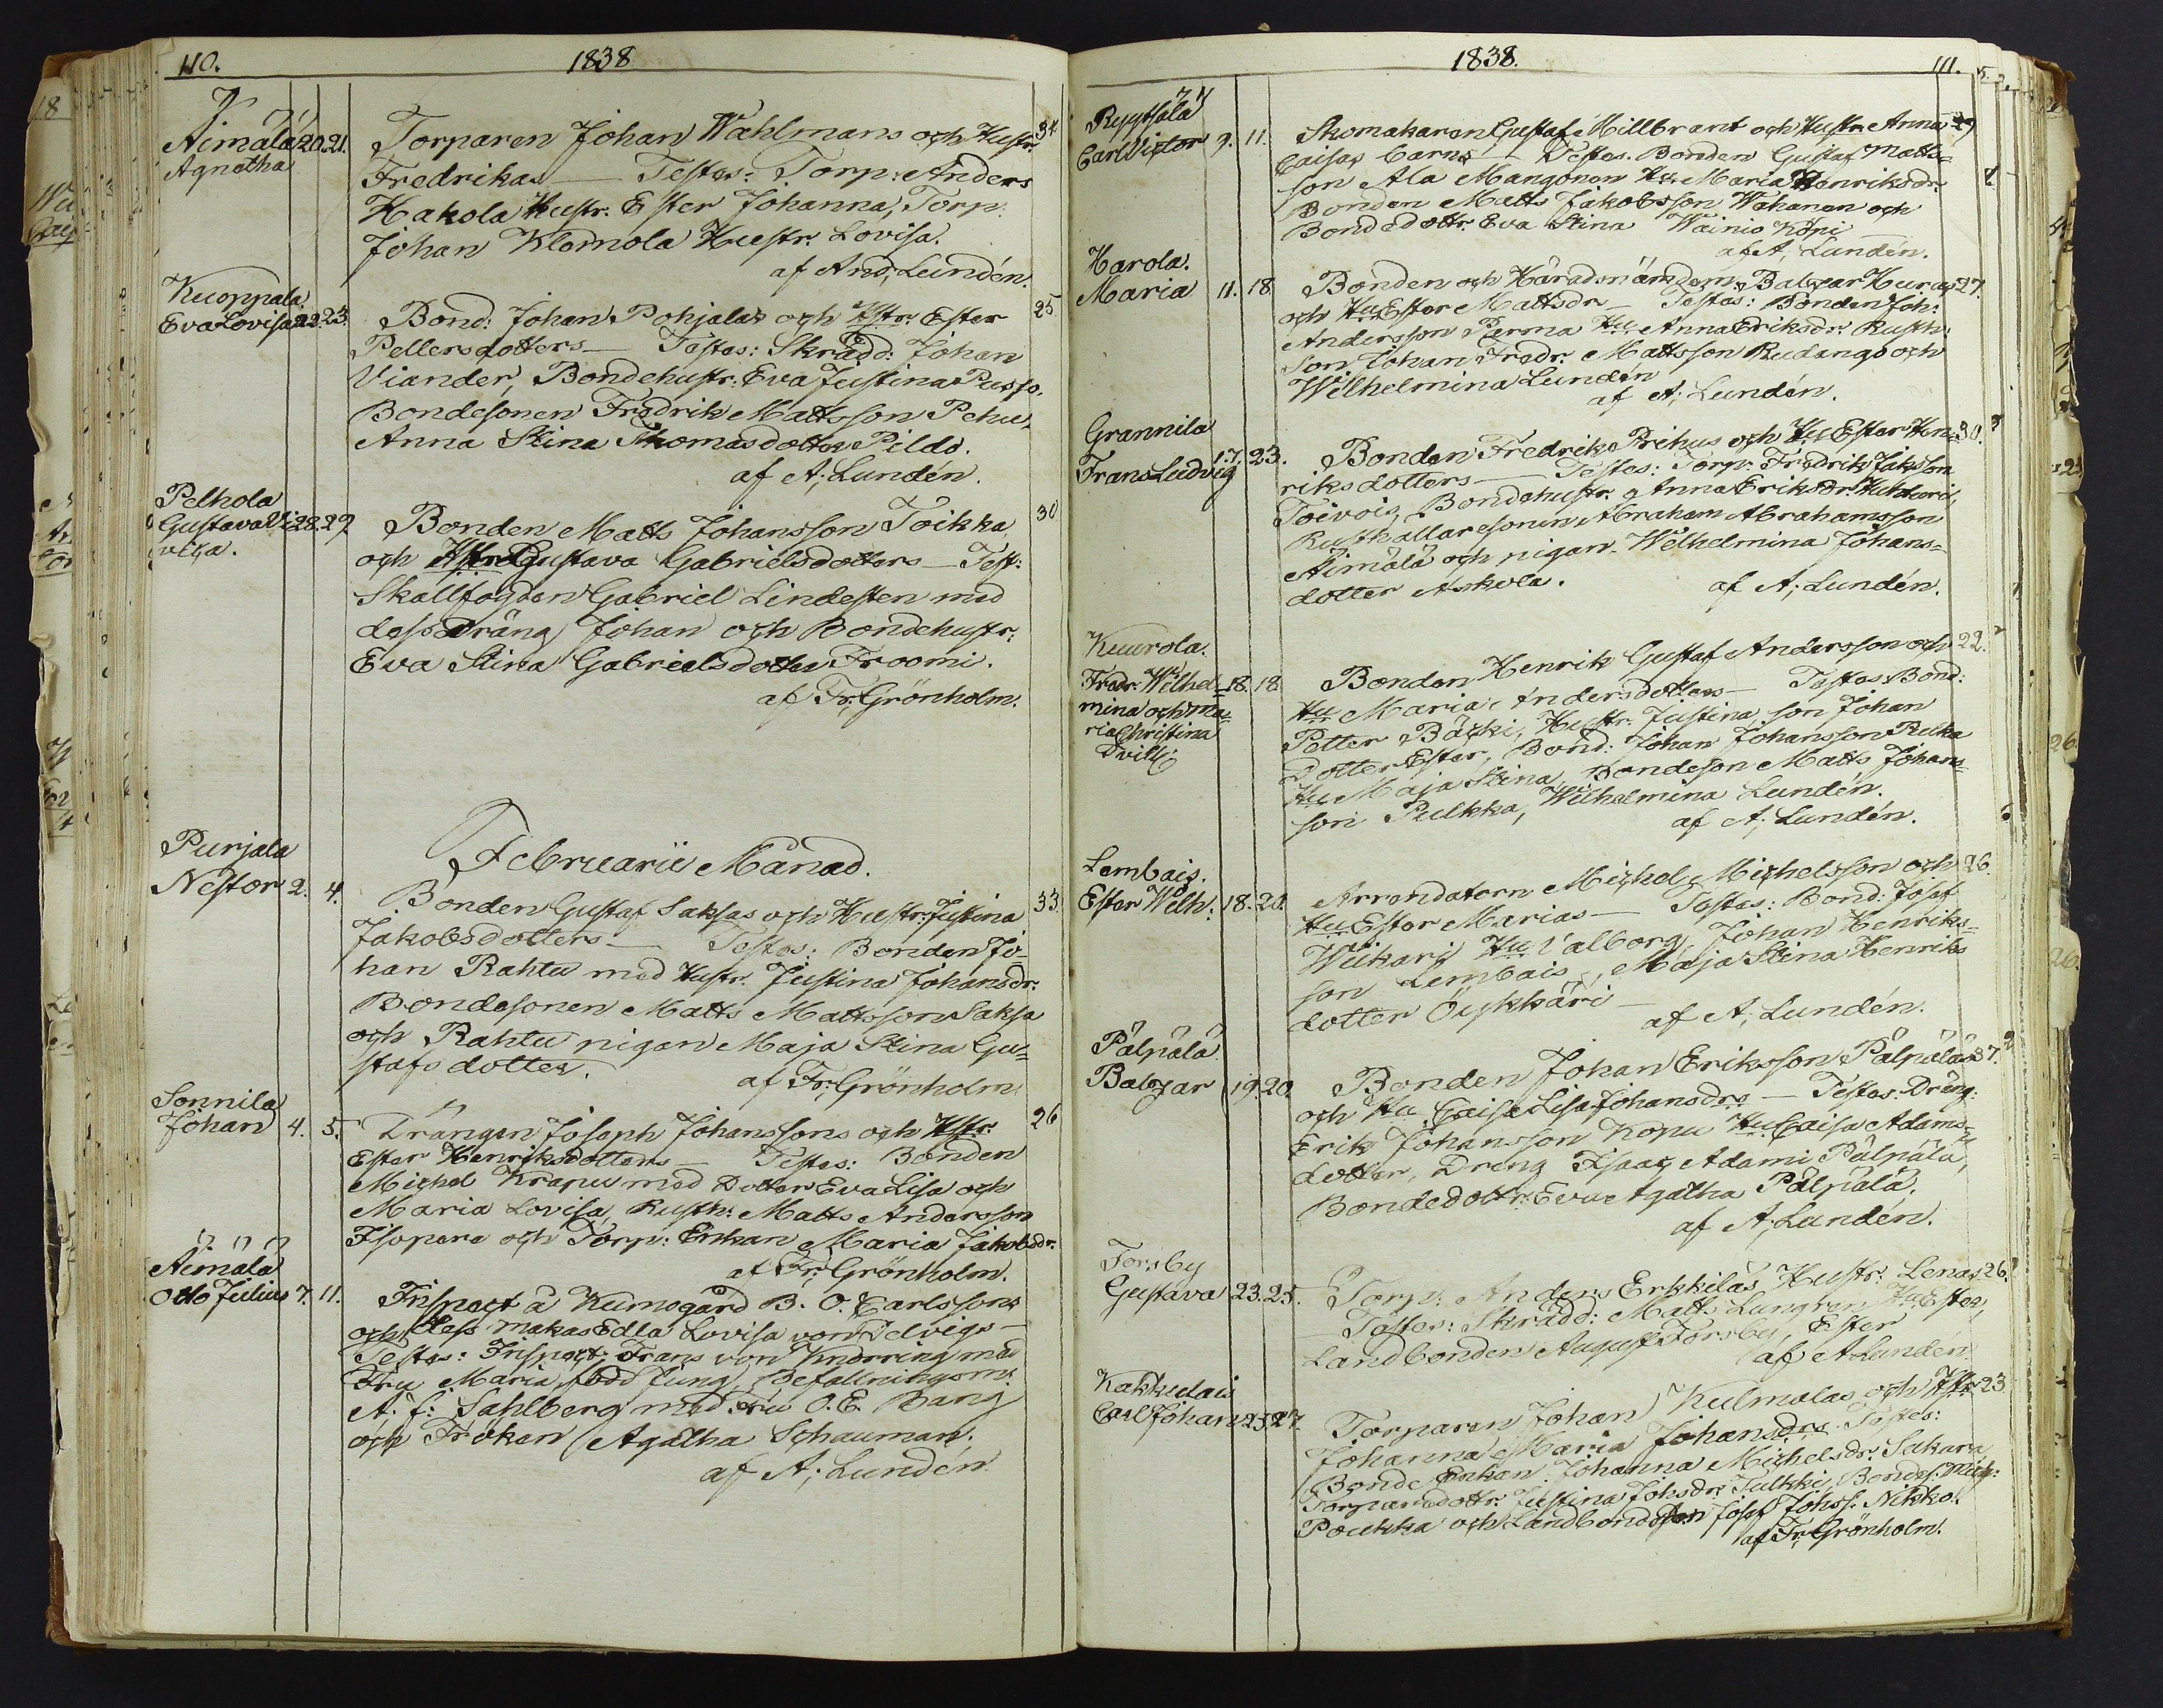 110.
1838
Äimälä 20. 21.
Agnetha
Torparen Johan Wahlmans och Hustr. 34
Fredrikas — Testes: Torp: Anders
Hakola Hustr. Ester Johanna, Torp.
Johan Klomola Hustr. Lovisa.
af And; Lundén.
Kuoppala.
Eva Lovisa 22. 23.
Bond: Johan Pohjalas och Hstr. Ester 25.
Pellersdotters — Testes: Skrädd: Johan
Viander, Bondehustr. Eva Justina Pusso,
Bondesonen Fredrik Mattsson Pehu,
Anna Stina Thomasdotter Pildo.
af A; Lundén.
Pelhola
Gustava Vi= 28. 29.
viga.
Bonden Matts Johansson Toikka 30
och Hstr. Gustava Gabrielsdotters — Test:
Skallfogden Gabriel Lindesten med
dess Dräng Johan och Bondehustr.
Eva Stina Gabrielsdotter Froomi.
af Fr; Grönholm.
Februarii Månad.
Purjala
Nestor 2. 4.
Bonden Gustaf Saksas och Hustr. Justina 33.
Jakobsdotters — Testes: Bonden Jo=
han Rahtu med Hustr. Justina Johansdr.
Bondesonen Matts Mattsson Saksa
och Rahtu pigan Maja Stina Gu=
stafsdotter.
af Fr; Grönholm
Sonnila
Johan 4. 5.
Drängen Joseph Johanssons och Hstr. 26
Ester Henriksdotters — Testes: Bonden
Michel Krapu med Dotter Eva Lisa och
Maria Lovisa, Rusth: Matts Andersson
Isopere och Torp: Enkan Maria Jakobsdr.
af Fr; Grönholm.
Äimälä
Otto Julius 7. 11.
Inspect å Kumogård B. O. Carlssons
och dess makas Edla Lovisa von Delvigs —
Testes: Inspect: Frans von Knorring med
Fru Maria född Jung, Befallningsm:
A. f: Sahlberg med Fru O. E. Bang
och Fröken Agatha Schauman.
af A; Lundén
1838.
111.
Ryytsälä
Carl Victor 9. 11.
Skomakaren Gustaf Millbrant och Hustr. Anna 29
Caisas barns — Testes. Bonden Gustaf Matts=
son Ala Mangonen Hu. Maria Henriksdr.
Bonden Matts Jakobsson Wahanen och
Bondedottr. Eva Stina Wainio Köpi
af A; Lundén.
Harola.
Maria 11. 18
Bonden och Häradsnämdem: Balzar Hurus 27.
och Hu Ester Mattsdr. — Testes: Bonden Joh:
Andersson Perma Hu Anna Eriksdr. Rusth:
son Johan Fredr. Mattsson Rudanga och
Wilhelmina Lundén
af A; Lundén.
Grannila
Frans Ludvig 17. 23.
Bonden Fredrik Prihus och Hu Ester Hen= 30.
riksdotters — Testes: Torp: Fredrik Jaksson
Toivois, Bondehustr. Anna Eriksdr. Huhturi,
Rusthållaresonen Abraham Abrahamsson
Äimälä och pigan Wilhelmina Johans=
dotter Askola.
af A; Lundén.
Kuurola.
Fredr. Wilhel= 18. 18
mina och Ma=
ria Christina
Tvill;
Bonden Henrik Gustaf Andersson och 22.
Hu Maria Andersdotters — Testes: Bond:
Petter Bäcki, Hustr. Justina, son Johan
Dotter Ester, Bond: Johan Johansson Pulka
Hu Maja Stina, Bondeson Matts Johans=
son Pulkka, Wilhelmina Lundén.
af A; Lundén.
Lembais.
Ester Wilh: 18. 20.
Arrendatorn Michel Michelsson och 26.
Hu Ester Marias — Testes: Bond: Josef
Wiikari Hu Valborg, Johan Henriks=
son Lembais, Maja Stina Henriks
dotter Öykkäri —
af A; Lundén.
Pälpälä
Balzar 19. 20
Bonden Johan Eriksson Pälpäläs 37.
och Hu Caisa Lisa Johansdrs — Testes: Dräng:
Erik Johansson Kopu Hu Caisa Adams=
dotter, Dreng Isaac Adami Pälpälä,
Bondedottr. Eva Agatha Pälpälä.
af A; Lundén.
Forsby
Gustava 23. 25.
Torp: Anders Erkkiläs Hustr. Lenas 26.
— Testes: Skrädd: Matts Lungren Hu Ester,
Landbonden August Forsby, Ester
af A Lundén
Kakkulais
Carl Johan 23. 27.
Torparen Johan Kulmalas och Hstr 23
Johanna Maria Johansdrs. Testes:
Bonde Enkan Johanna Michelsdr. Sukara
Torparedottr. Justina Johsdr. Tulkki, Bondes: Mich:
Poukka och Landbondeson Josef Johss. Nikko.
af Fr; Grönholm.